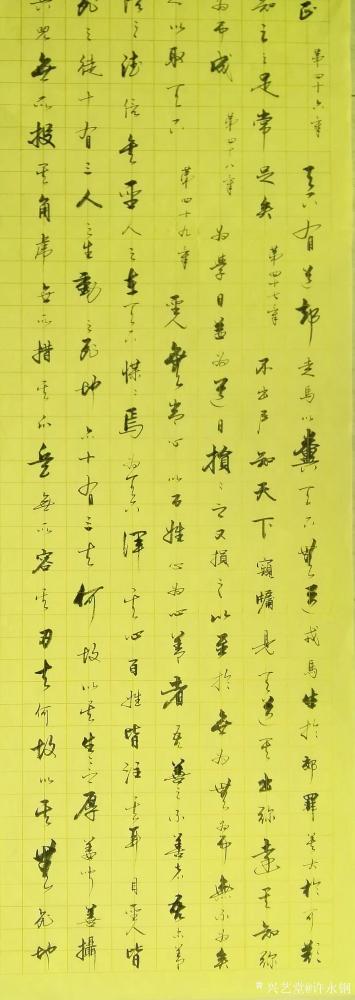 正 第四十六章 天下有道郤走馬以糞天下無道戎馬生於郊罪莫大於可欲
知足之足常足矣 第四十七章 不出戶知天下窺牖見天道其出彌遠其知彌
為而成 第四十八章 為學日益為道日損損之又損之以至於無為無為而無不為矣
以取天下 第四十九章 聖人無常心以百姓心為心善者吾善之不善者吾亦善
信之德信矣聖人之在天下惵惵焉為天下渾其心百姓皆注其耳目聖人皆
死之徒十有三人之生動之死地亦十有三夫何故以其生生之厚蓋聞善攝
兕無所投其角虎無所措其爪兵無所容其刃夫何故以其無死地
兴艺堂@许永钢